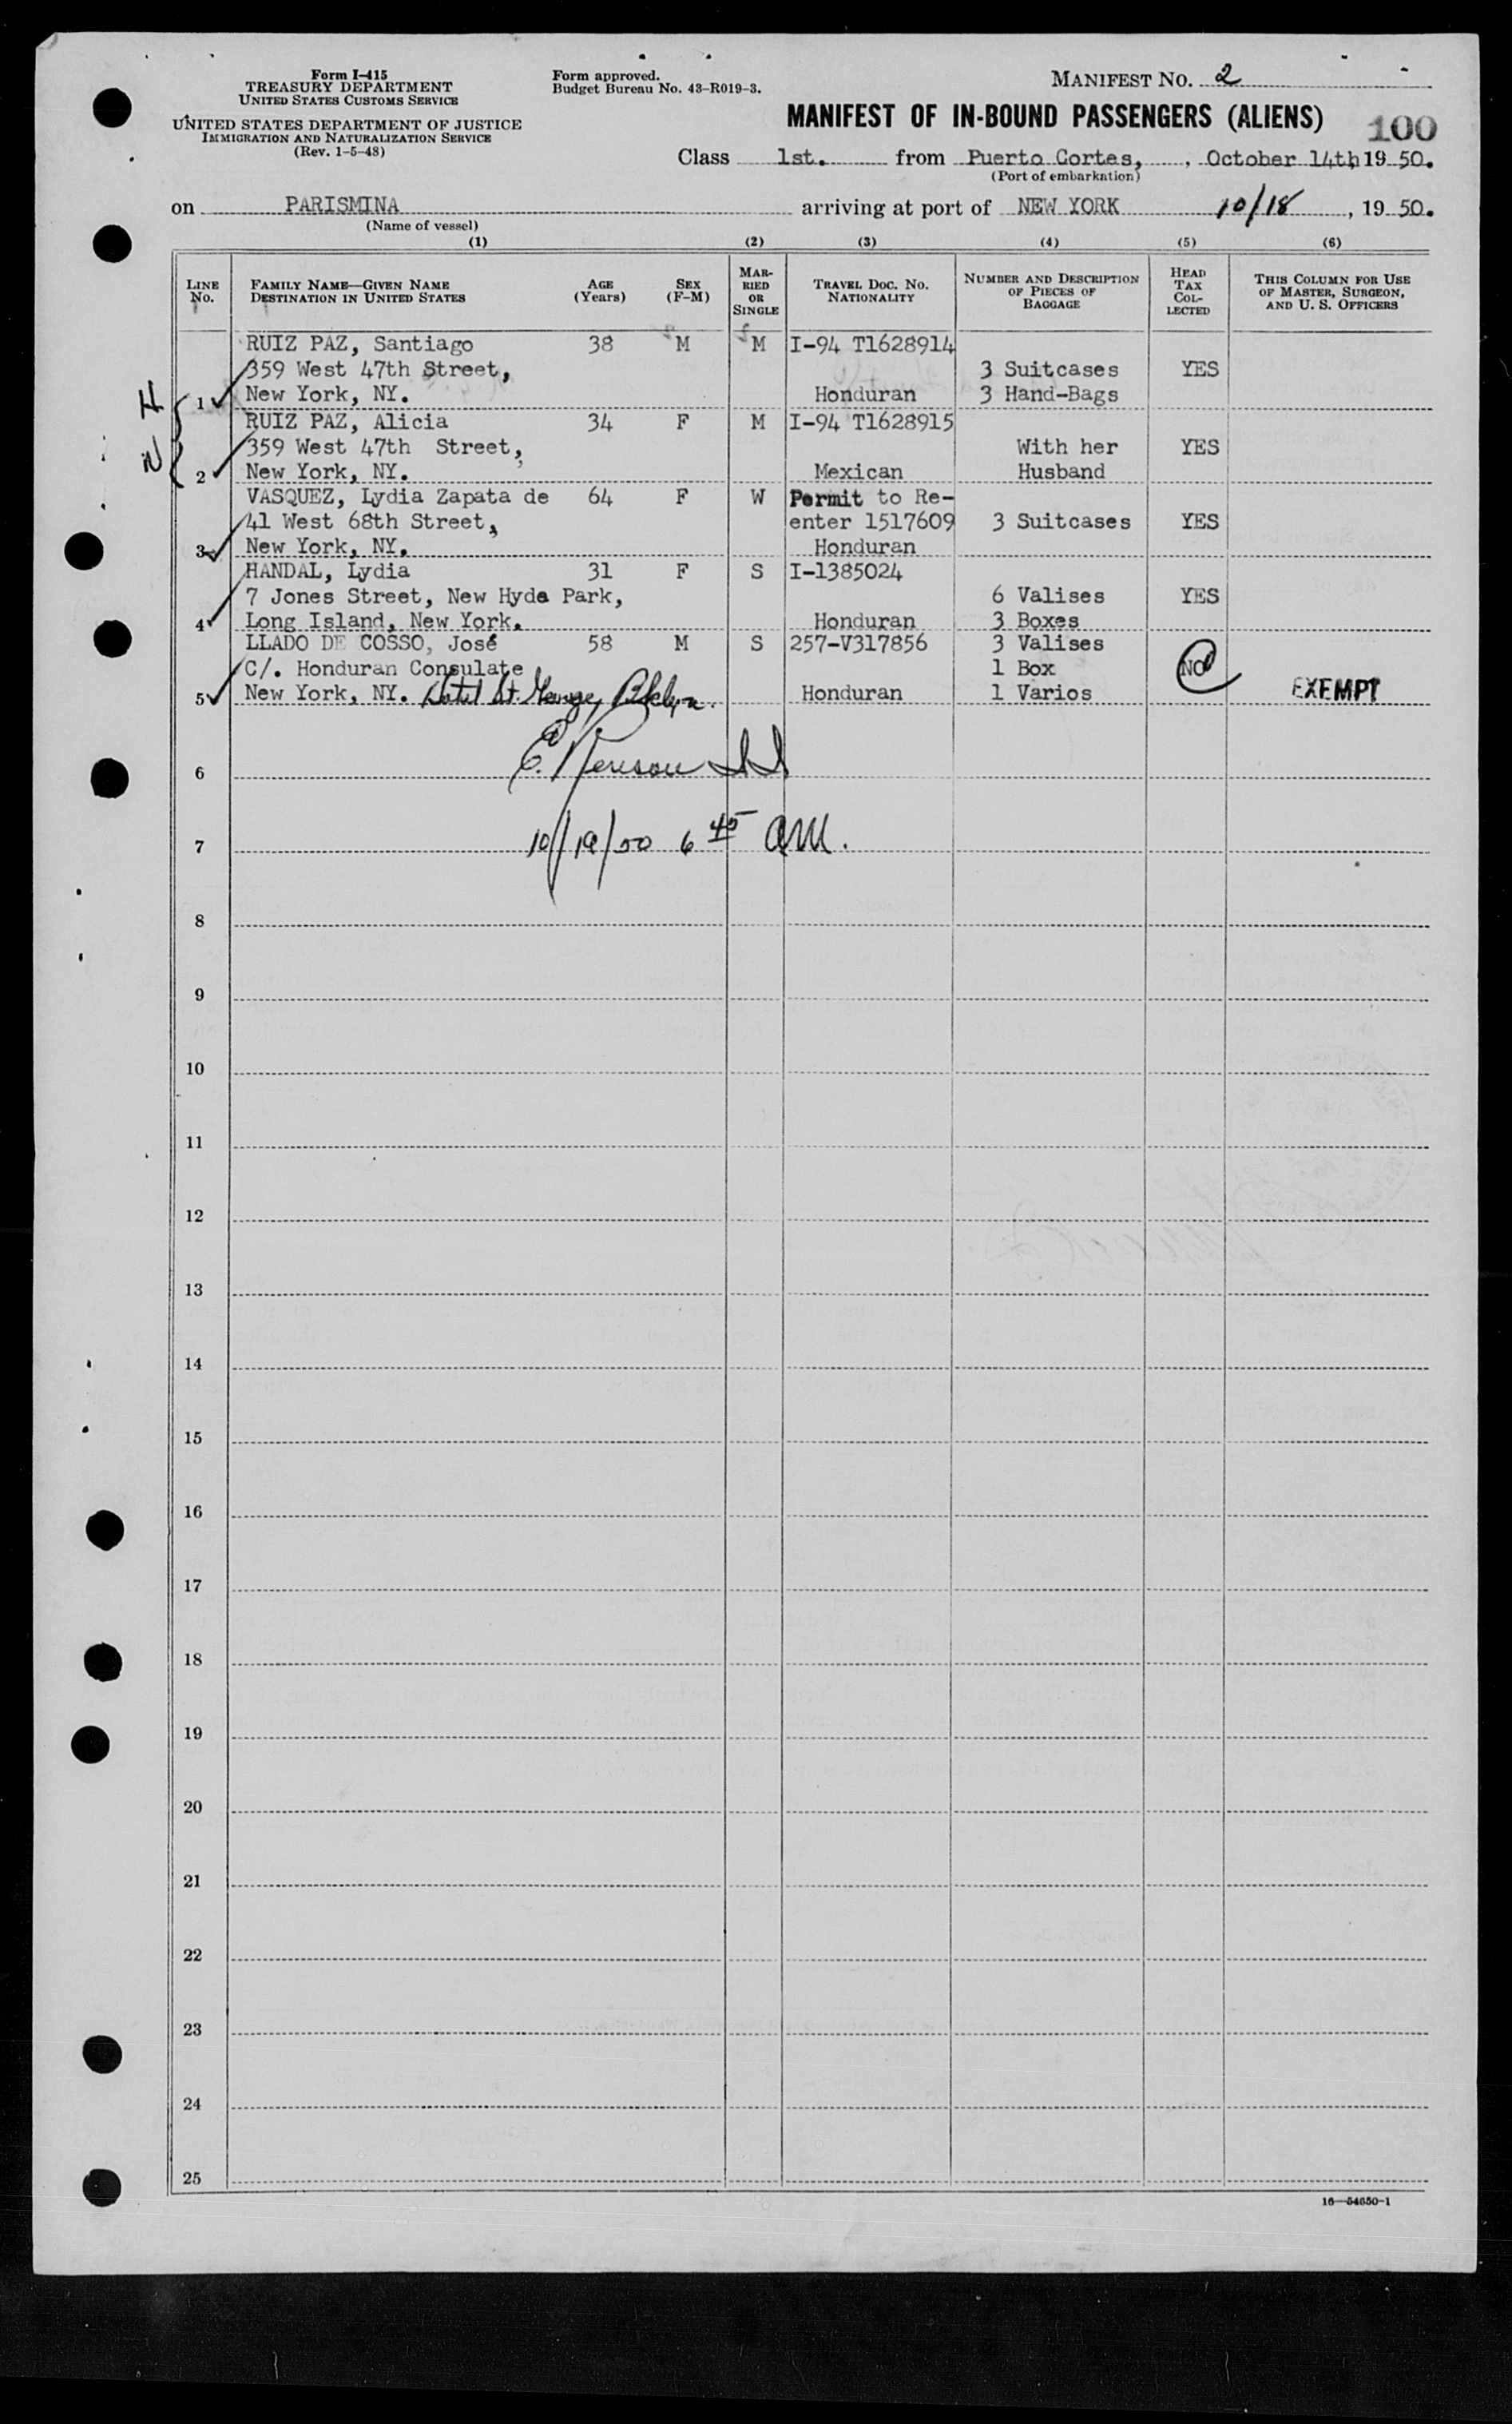 Form I-415
TREASURY DEPARTMENT
UNITED STATES CUSTOMS SERVICE
UNITED STATES DEPARTMENT OF JUSTICE
IMMIGRATION AND NATURALIZATION SERVICE
(Rev. 1-5-48)
Form approved.
Budget Bureau No. 43-R019-3.
MANIFEST NO. 2
MANIFEST OF IN-BOUND PASSENGERS (ALIENS)
100
Class 1st. from Puerto Cortes, , October 14th, 19 50.
(Port of embarkation)
on PARISMINA arriving at port of NEW YORK 10/18, 19 50.
(Name of vessel)
(1) (2) (3) (4) (5) (6)
LINE No. FAMILY NAME—GIVEN NAME DESTINATION IN UNITED STATES AGE (Years) SEX (F-M) MARRIED OR SINGLE TRAVEL DOC. NO. NATIONALITY NUMBER AND DESCRIPTION OF PIECES OF BAGGAGE HEAD TAX COLLECTED THIS COLUMN FOR USE OF MASTER, SURGEON, AND U. S. OFFICERS
RUIZ PAZ, Santiago 38 M M I-94 T1628914
359 West 47th Street, 3 Suitcases YES
1 New York, NY. Honduran 3 Hand-Bags
RUIZ PAZ, Alicia 34 F M I-94 T1628915
359 West 47th Street, With her YES
2 New York, NY. Mexican Husband
VASQUEZ, Lydia Zapata de 64 F W Permit to Re-
41 West 68th Street, enter 1517609 3 Suitcases YES
3 New York, NY. Honduran
HANDAL, Lydia 31 F S I-1385024
7 Jones Street, New Hyde Park, 6 Valises YES
4 Long Island, New York. Honduran 3 Boxes
LLADO DE COSSO, José 58 M S 257-V317856 3 Valises
C/. Honduran Consulate 1 Box NO
5 New York, NY. Hotel St. George, Bklyn. Honduran 1 Varios EXEMPT
6
10/19/50 6 45 AM.
7
8
9
10
11
12
13
14
15
16
17
18
19
20
21
22
23
24
25
16—54650-1